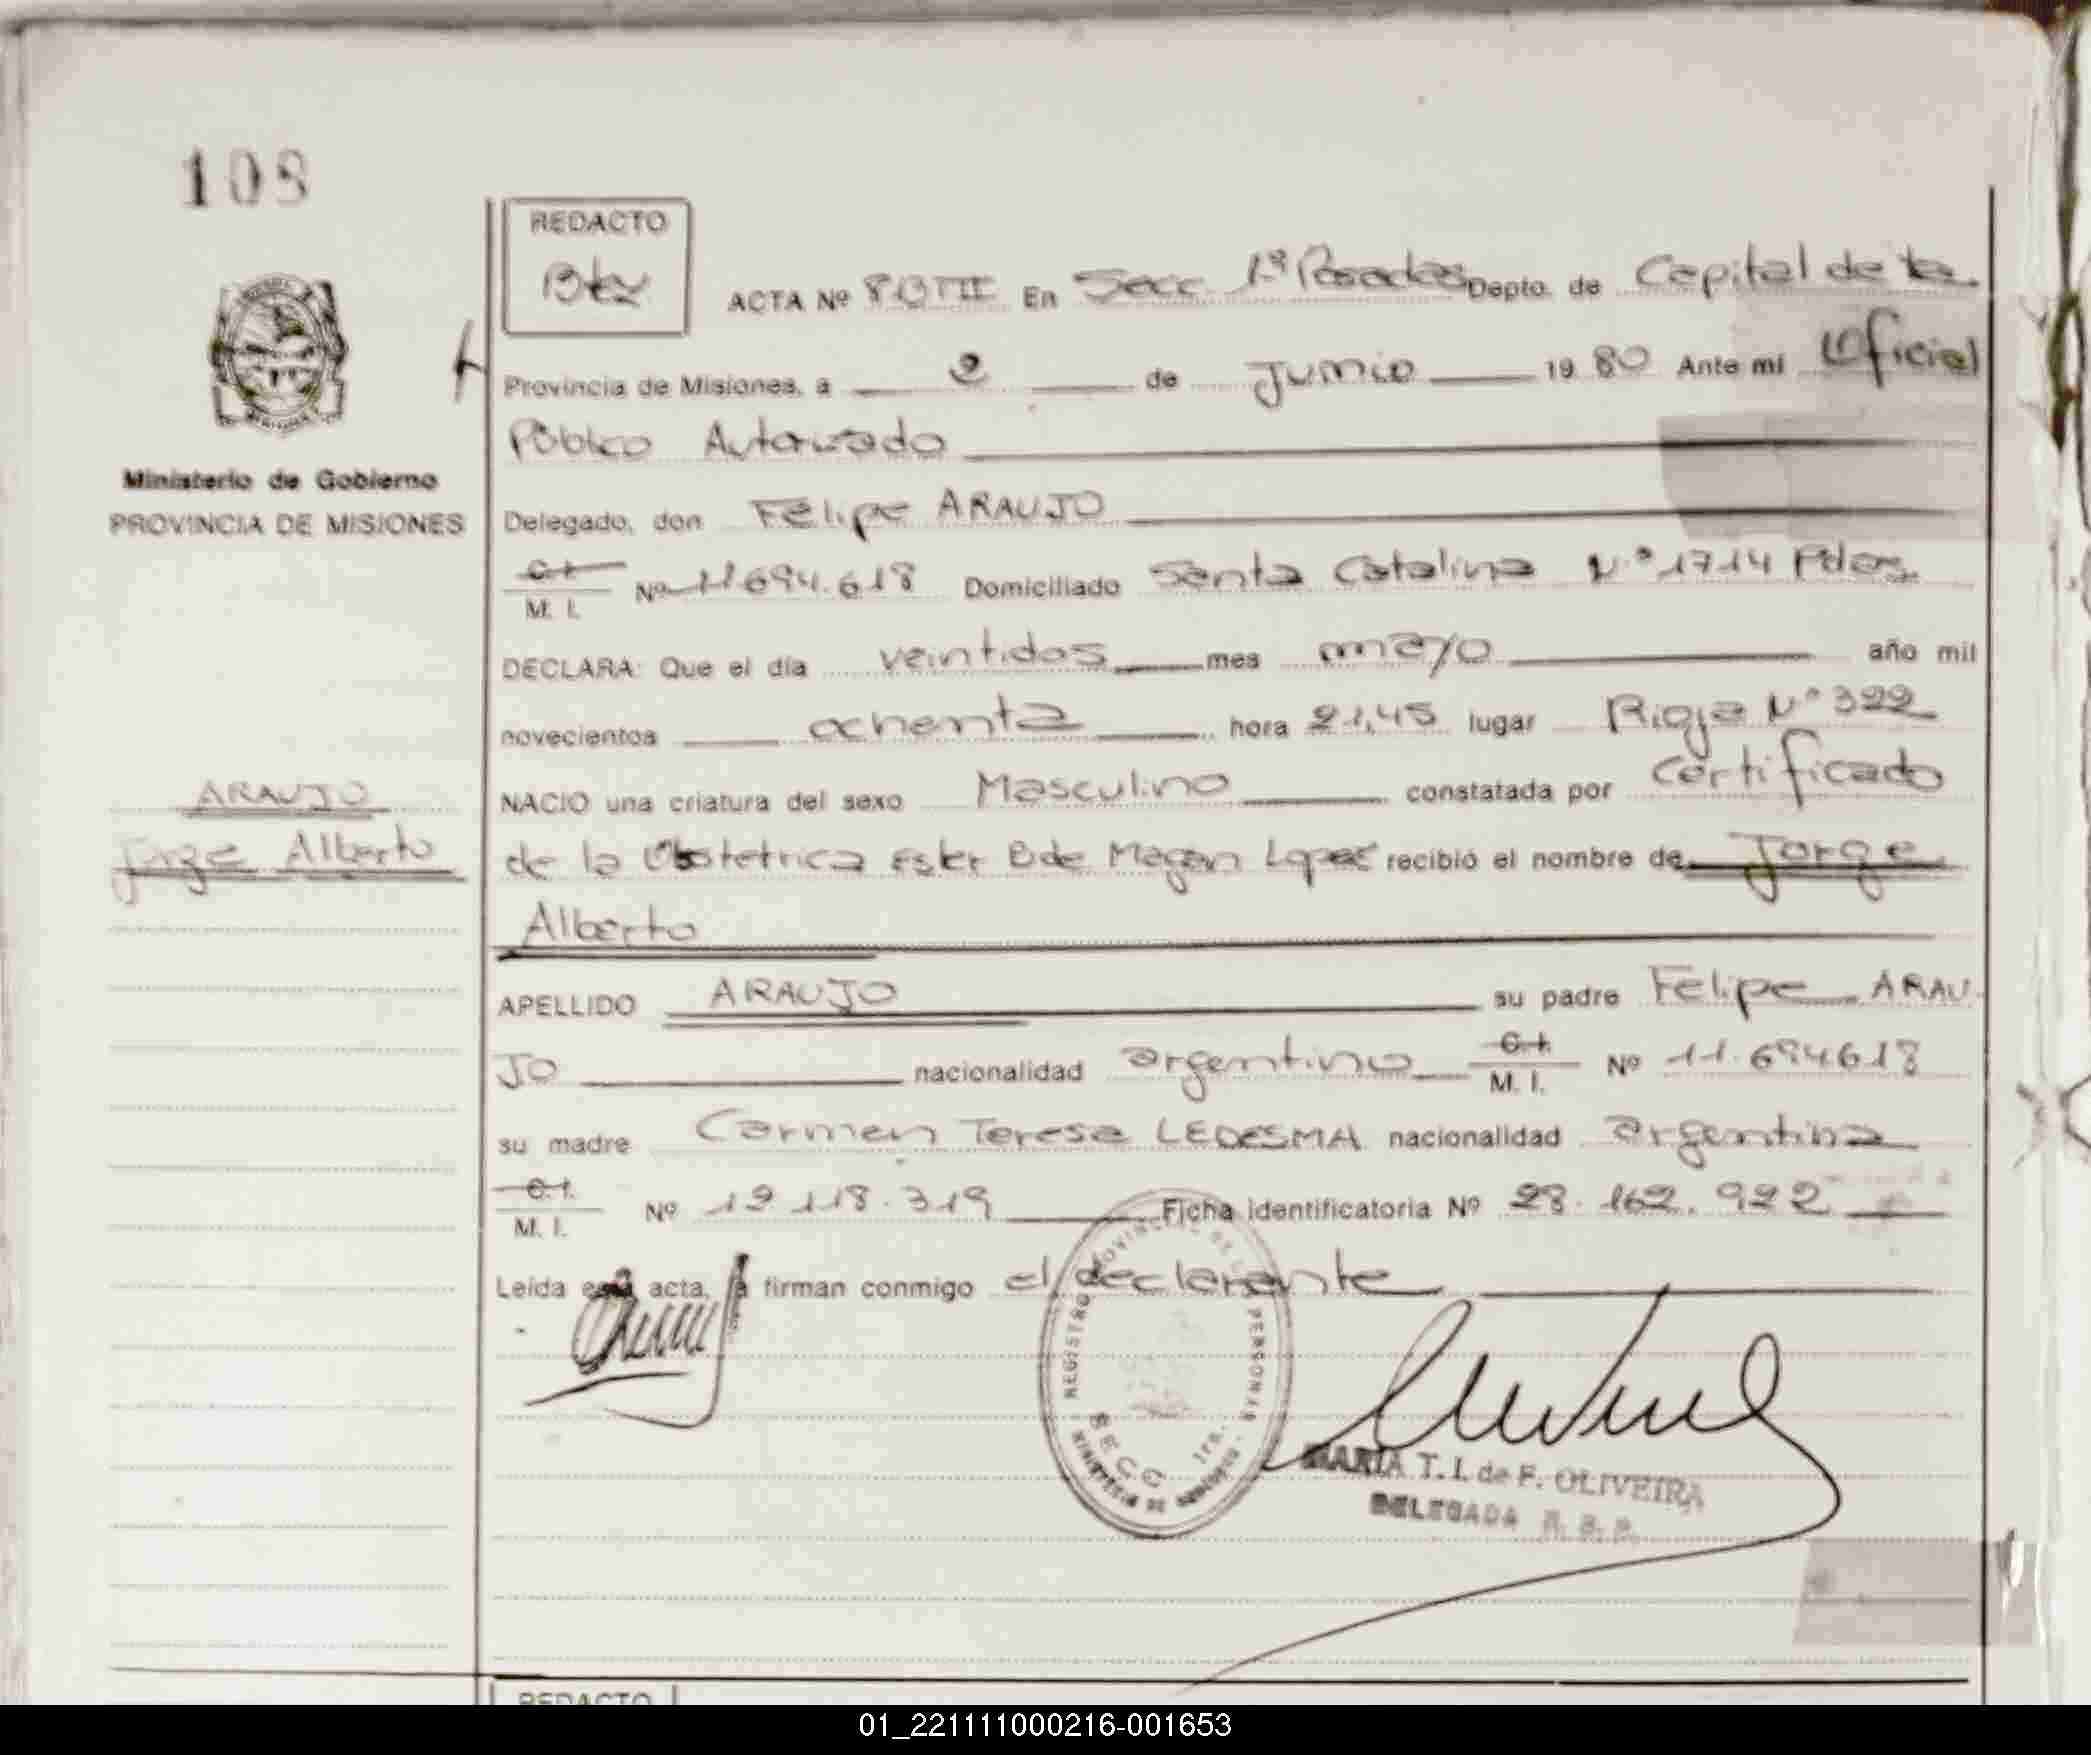 108
REDACTO
ACTA Nº 80TII En Secc 1ª Posadas Depto. de Capital de la
Provincia de Misiones, a 2 de Junio 1980 Ante mi Oficial
Público Autorizado
Ministerio de Gobierno
PROVINCIA DE MISIONES
Delegado, don Felipe ARAUJO
C. I.
M. I.
Nº 11694.618 Domiciliado Santa Catalina Nº 1714 Pdas.
DECLARA: Que el día veintidos mes mayo año mil
novecientos ochenta hora 21,45 lugar Rioja Nº 322
ARAUJO
NACIO una criatura del sexo Masculino constatada por Certificado
Jorge Alberto
de la Obstetrica Ester B de Magan Lopez recibió el nombre de Jorge
Alberto
APELLIDO ARAUJO su padre Felipe ARAU
JO nacionalidad argentino C. I. M. I. Nº 11.694618
su madre Carmen Teresa LEDESMA nacionalidad argentina
C. I.
M. I.
Nº 12.118.319 Ficha identificatoria Nº 28.162.922
Leída esta acta, la firman conmigo el declarante
REGISTRO PROVINCIAL DE LAS PERSONAS
SECC 1ra.
MARIA T. I. de F. OLIVEIRA
DELEGADA R. P. P.
REDACTO
01_221111000216-001653